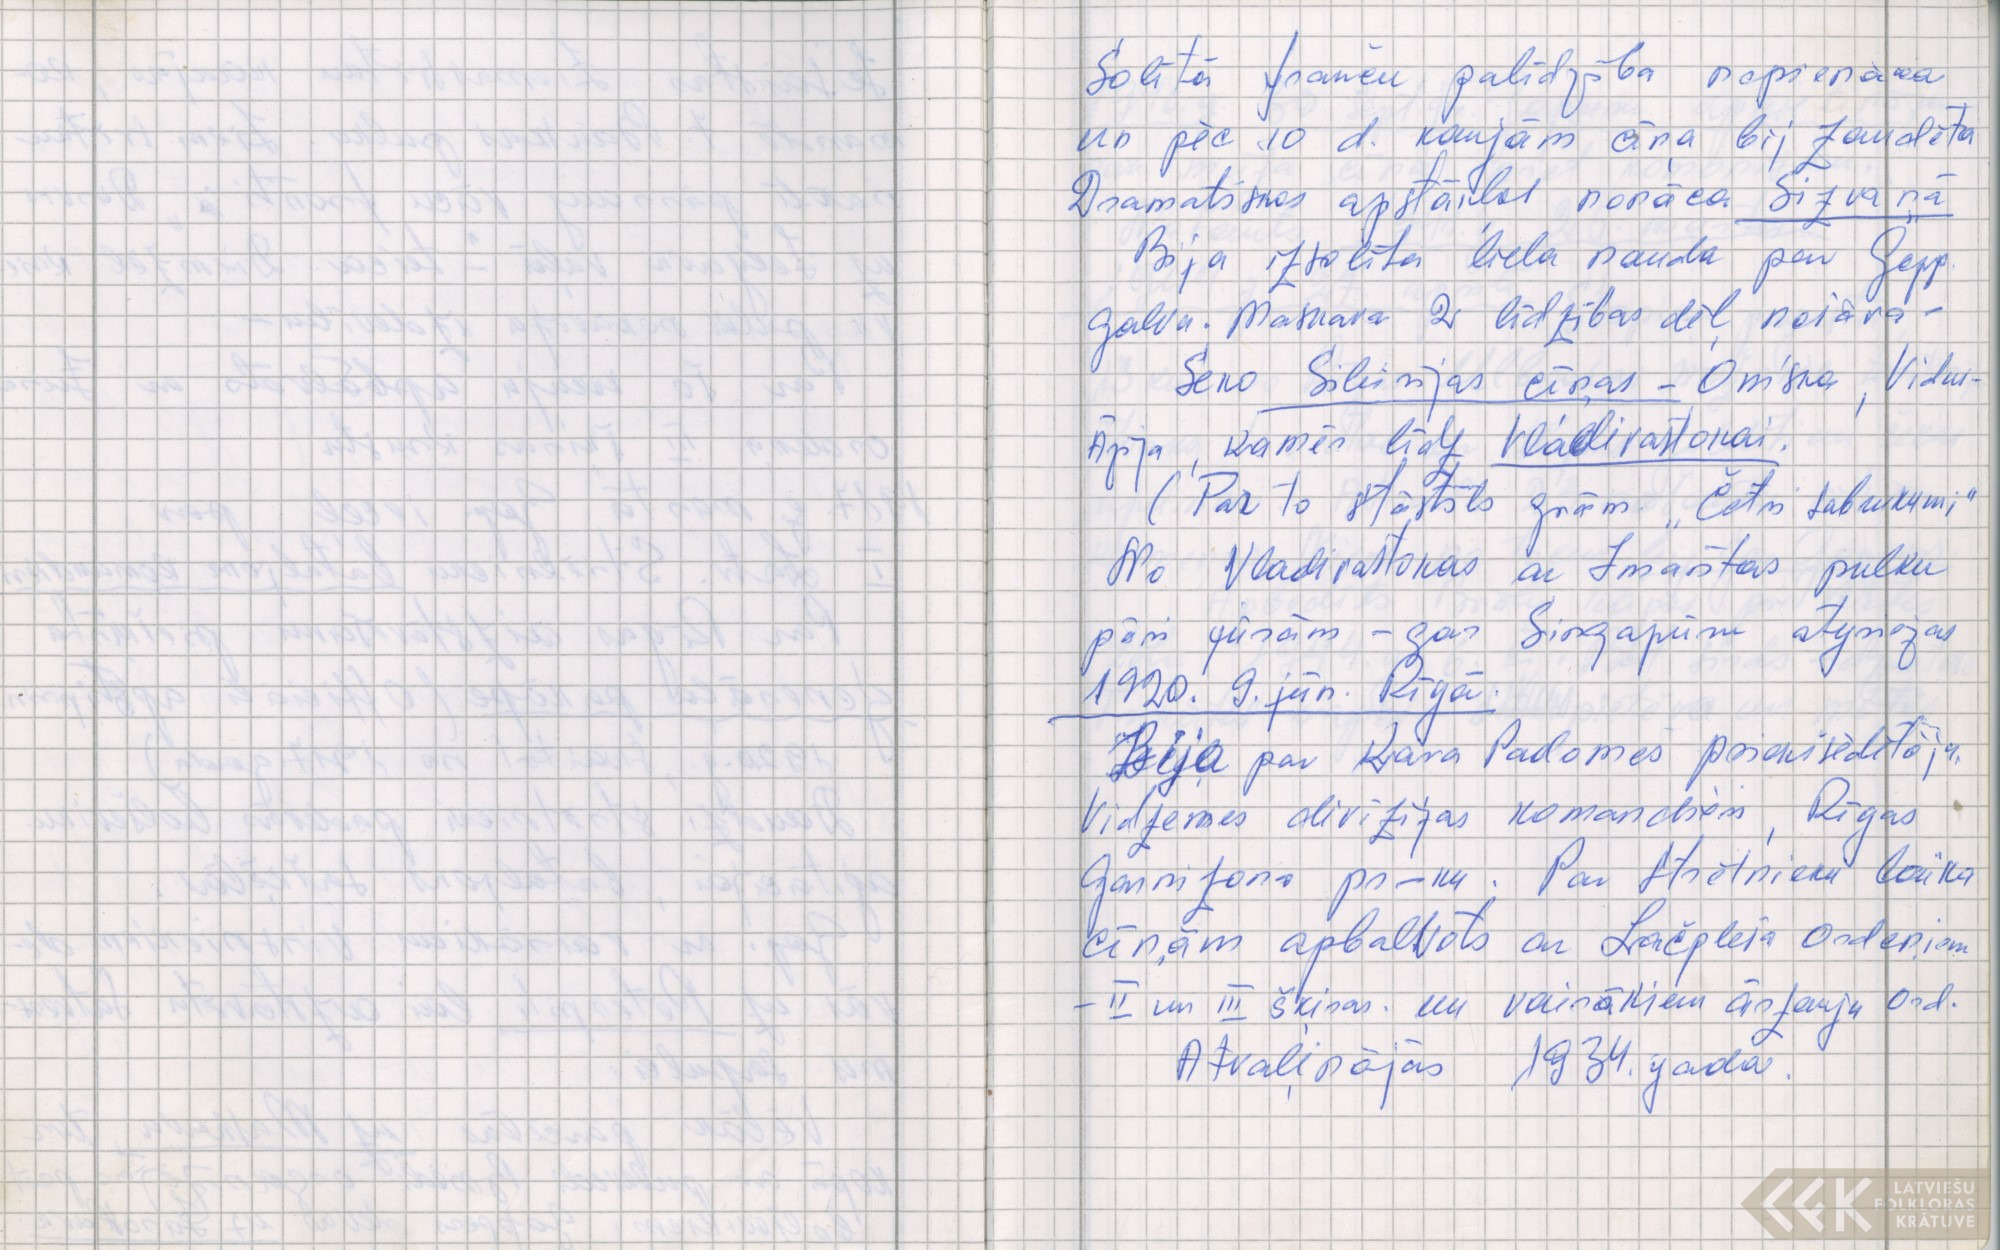 Solītā franču palīdzība nepienāca
un pēc 10 d. kaujām cīņa bij zaudēta
Dramatiskos apstākļos nonāca Sizraņā
Bija izsolīta liela nauda par Gopp.
galvu. Maskava 2 līdzības dēļ nošāva –
Seko Sibirijas cīņas – Omska, Vidus-
Āzija, kamēr līdz Vladivastokai.
(Par to stāstīts grām. „Četri sabrukumi"
No Vladivastokas ar Imantas pulku
pāri jūrām – gar Singapūru atgriežas
1920. 9. jūn. Rīgā.
Bija par Kara Padomes priekšsēdētāju,
Vidzemes divīzijas komandieri, Rīgas
Garnizona pr-ku. Par strēlnieku laika
cīņām apbalvots ar Lāčplēša Ordeņiem
– II un III šķiras. un vairākiem ārzemju ord.
Atvaļinājās 1934. gadā.
LATVIEŠU
FOLKLORAS
KRĀTUVE